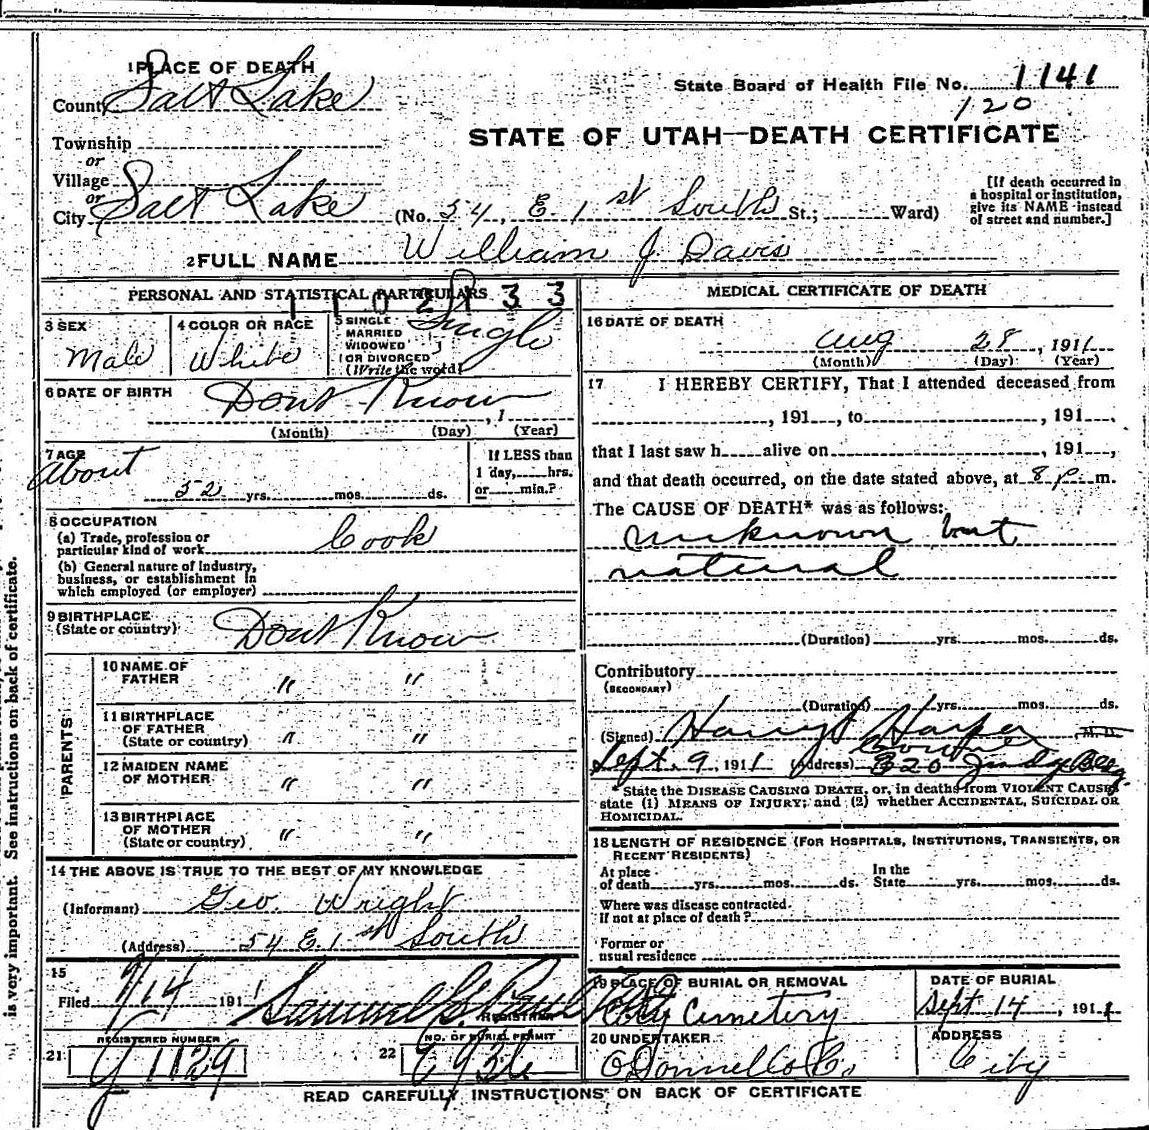 1 PLACE OF DEATH
County Salt Lake
State Board of Health File No. 1141
120
Township
or
Village
or
City Salt Lake (No. 54, E. 1st South St.; Ward)
STATE OF UTAH—DEATH CERTIFICATE
[If death occurred in
a hospital or institution,
give its NAME instead
of street and number.]
2 FULL NAME William J Davis
PERSONAL AND STATISTICAL PARTICULARS
33
3 SEX
Male
4 COLOR OR RACE
White
5 SINGLE
MARRIED
WIDOWED
OR DIVORCED
(Write the word)
Single
6 DATE OF BIRTH
Dont Know, 1
(Month) (Day) (Year)
7 AGE
About
52 yrs. mos. ds.
If LESS than
1 day, hrs.
or min.?
8 OCCUPATION
(a) Trade, profession or
particular kind of work Cook
(b) General nature of Industry,
business, or establishment in
which employed (or employer)
9 BIRTHPLACE
(State or country) Dont Know
PARENTS
10 NAME OF
FATHER " "
11 BIRTHPLACE
OF FATHER
(State or country) " "
12 MAIDEN NAME
OF MOTHER " "
13 BIRTHPLACE
OF MOTHER
(State or country) " "
14 THE ABOVE IS TRUE TO THE BEST OF MY KNOWLEDGE
(Informant) Geo. Wright
(Address) 54 E 1st South
15
Filed 9/14 1911 Samuel G. Paul
REGISTRAR
REGISTERED NUMBER
21 1129
NO. OF BURIAL PERMIT
22
MEDICAL CERTIFICATE OF DEATH
16 DATE OF DEATH
Aug 28, 1911
(Month) (Day) (Year)
17 I HEREBY CERTIFY, That I attended deceased from
, 191, to , 191
that I last saw h alive on , 191,
and that death occurred, on the date stated above, at 8 p. m.
The CAUSE OF DEATH* was as follows:
unknown but
natural
(Duration) yrs. mos. ds.
Contributory
(SECONDARY)
(Duration) yrs. mos. ds.
(Signed) Harry S Harper M.D.
Sept. 9, 1911 (Address)
*State the DISEASE CAUSING DEATH, or, in deaths from VIOLENT CAUSES,
state (1) MEANS OF INJURY; and (2) whether ACCIDENTAL, SUICIDAL OR
HOMICIDAL.
18 LENGTH OF RESIDENCE (FOR HOSPITALS, INSTITUTIONS, TRANSIENTS, OR
RECENT RESIDENTS)
At place
of death yrs. mos. ds.
In the
State yrs. mos. ds.
Where was disease contracted
if not at place of death?
Former or
usual residence
19 PLACE OF BURIAL OR REMOVAL
City Cemetery
DATE OF BURIAL
Sept 14, 1911
20 UNDERTAKER
O'Donnell & Co.
ADDRESS
City
READ CAREFULLY INSTRUCTIONS ON BACK OF CERTIFICATE
is very important. See instructions on back of certificate.